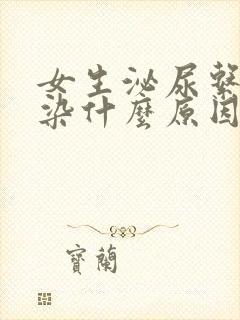 女生泌尿繫
染什麼原因
寶蘭